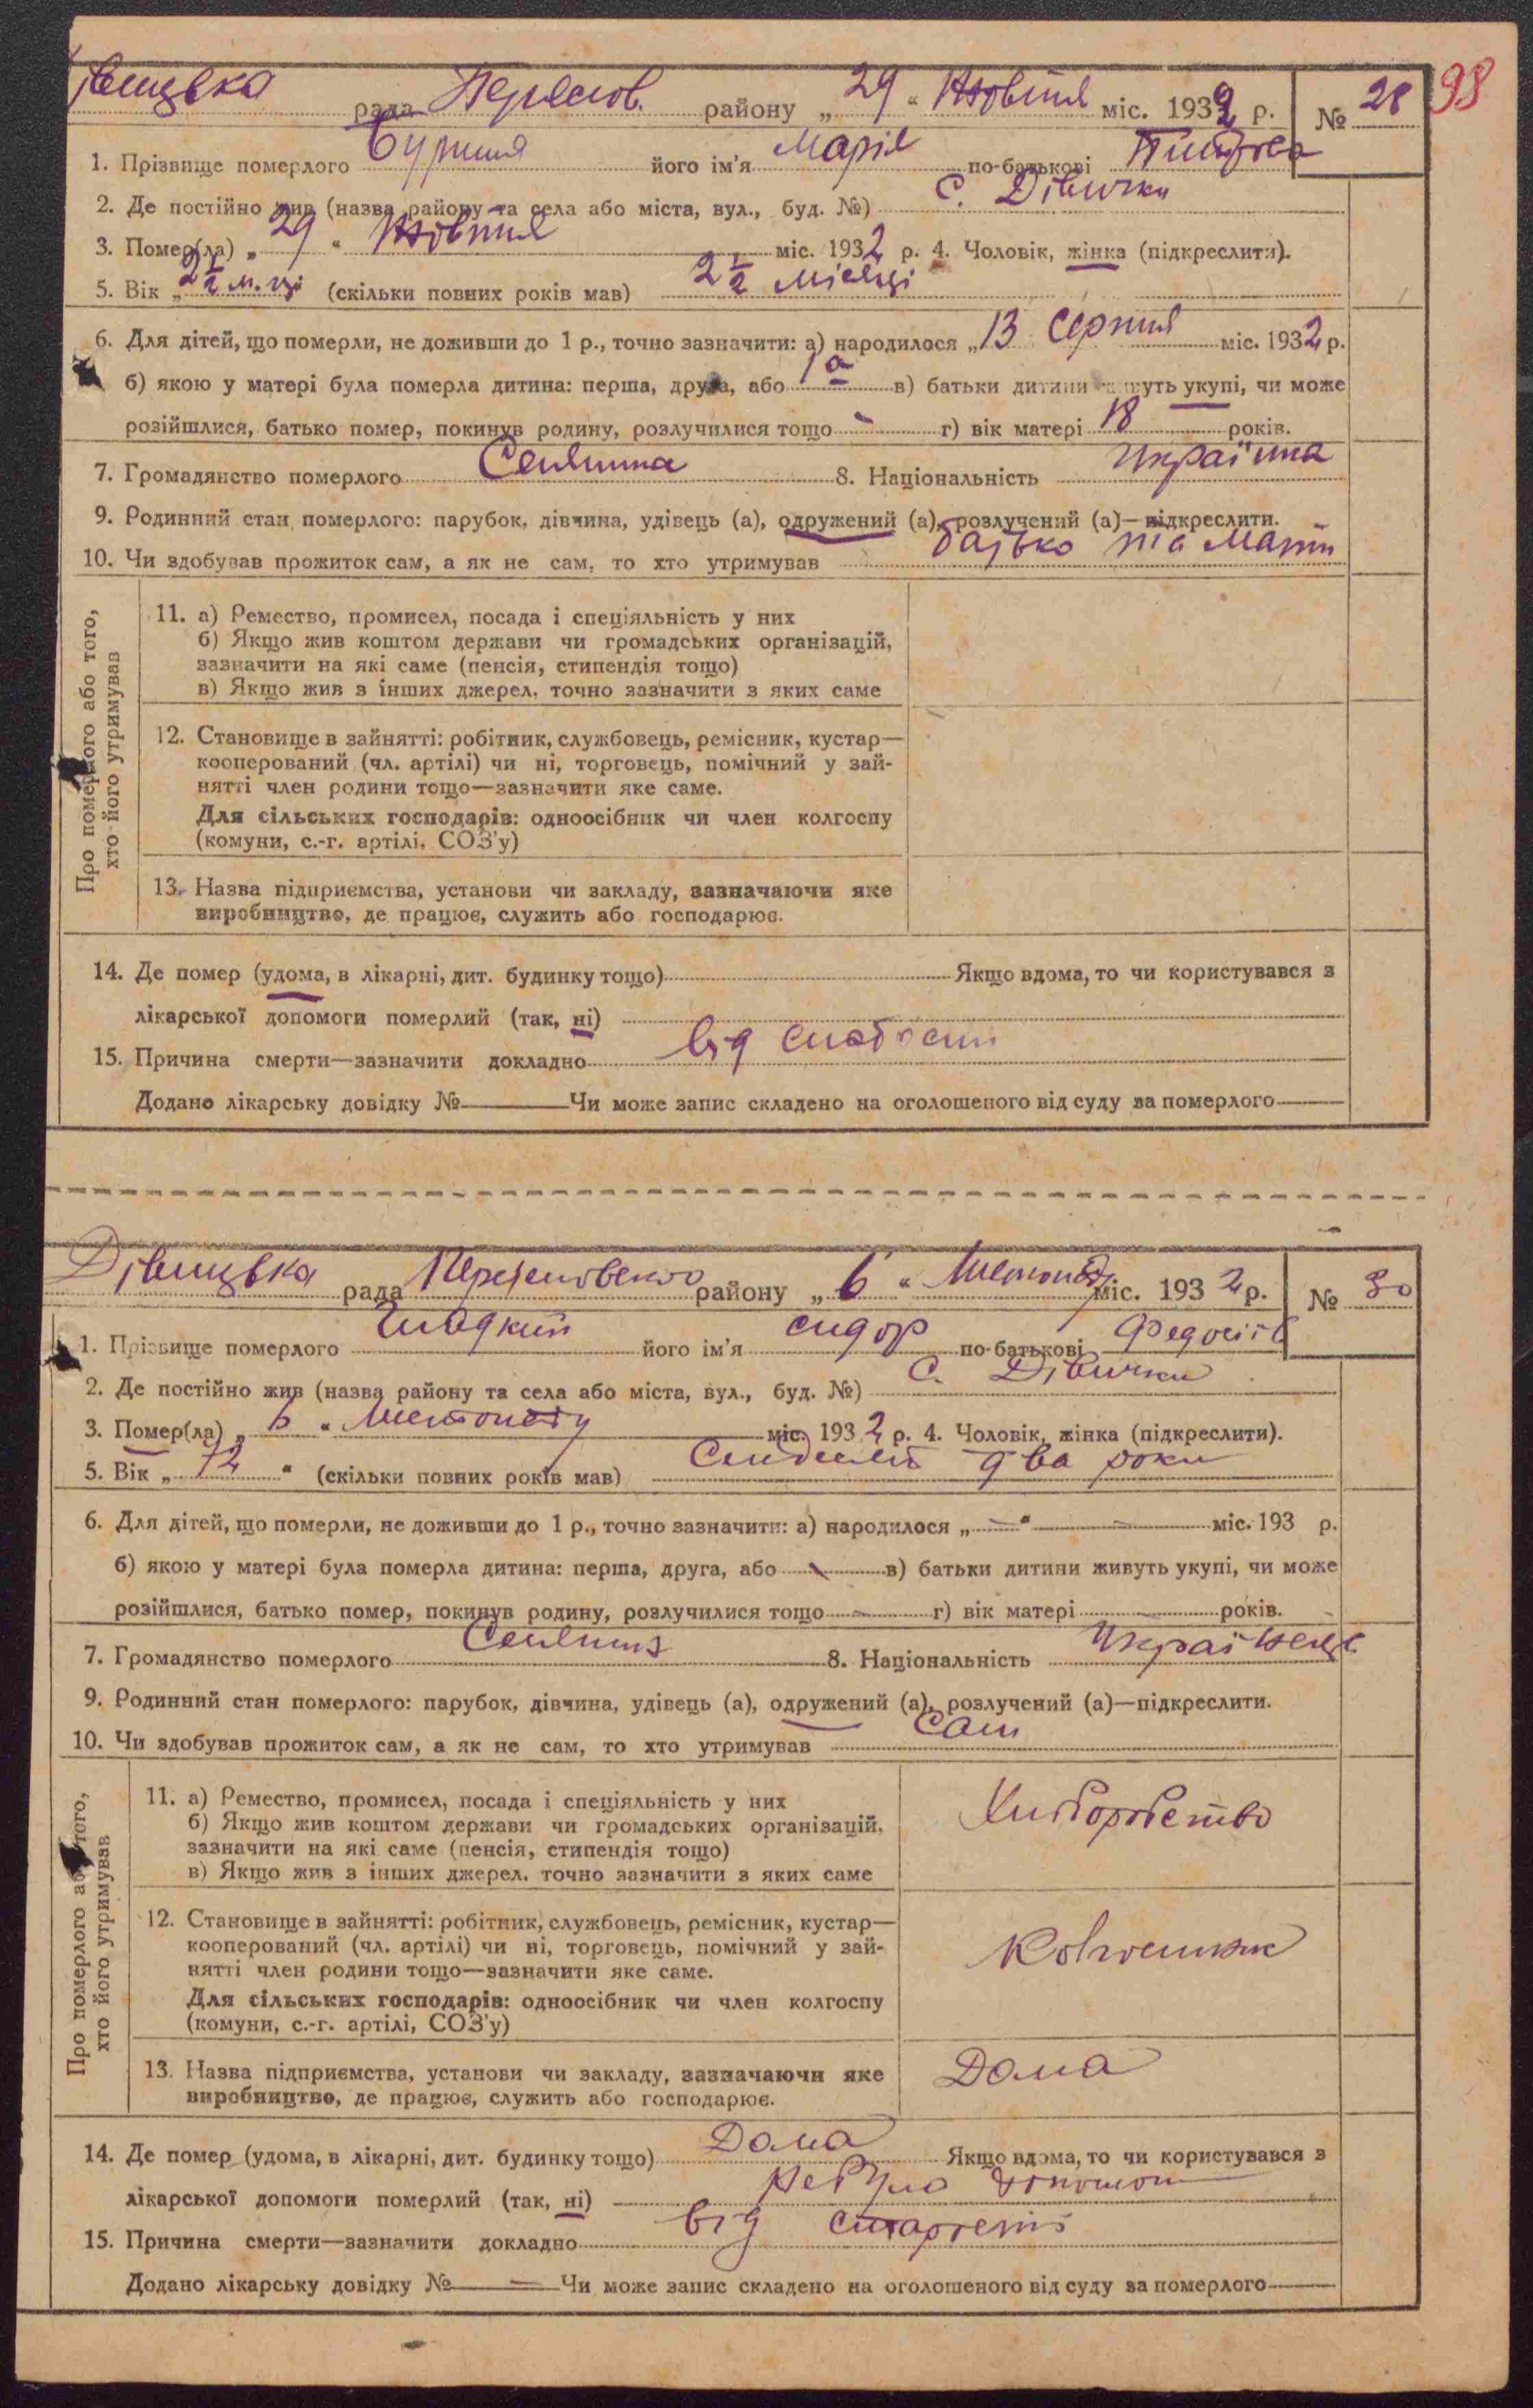 98
Дівицька рада Переяслов. району „29“ Жовтня міс. 1932 р. № 28
1. Прізвище померлого його ім'я Марія по-батькові
2. Де постійно жив (назва району та села або міста, вул., буд. №) с. Дівички
3. Помер(ла) „29“ Жовтня міс. 1932 р. 4. Чоловік, жінка (підкреслити).
5. Вік „2½ м.ці (скільки повних років мав) 2½ місяці
6. Для дітей, що померли, не доживши до 1 р., точно зазначити: а) народилося „13 Серпня міс. 1932 р.
б) якою у матері була померла дитина: перша, друга, або 1а в) батьки дитини живуть укупі, чи може
розійшлися, батько помер, покинув родину, розлучилися тощо - г) вік матері 18 років.
7. Громадянство померлого Селянка 8. Національність Українка
9. Родинний стан померлого: парубок, дівчина, удівець (а), одружений (а), розлучений (а)—підкреслити.
10. Чи здобував прожиток сам, а як не сам, то хто утримував батько та мати
Про померлого або того,
хто його утримував
11. а) Ремество, промисел, посада і спеціяльність у них
б) Якщо жив коштом держави чи громадських організацій,
зазначити на які саме (пенсія, стипендія тощо)
в) Якщо жив з інших джерел, точно зазначити з яких саме
12. Становище в зайнятті: робітник, службовець, ремісник, кустар—
кооперований (чл. артілі) чи ні, торговець, помічний у зай-
нятті член родини тощо—зазначити яке саме.
Для сільських господарів: одноосібник чи член колгоспу
(комуни, с.-г. артілі, СОЗ'у)
13. Назва підприємства, установи чи закладу, зазначаючи яке
виробництво, де працює, служить або господарює.
14. Де помер (удома, в лікарні, дит. будинку тощо) Якщо вдома, то чи користувався з
лікарської допомоги померлий (так, ні)
15. Причина смерти—зазначити докладно від слабости
Додано лікарську довідку № Чи може запис складено на оголошеного від суду за померлого
Дівицька рада Переясловского району „6“ Листопаду міс. 1932 р. № 30
1. Прізвище померлого Гладкий його ім'я сидор по-батькові Федосіїв
2. Де постійно жив (назва району та села або міста, вул., буд. №) с. Дівички
3. Помер(ла) „6“ Листопаду міс. 1932 р. 4. Чоловік, жінка (підкреслити).
5. Вік „72“ (скільки повних років мав) Симдесят два роки
6. Для дітей, що померли, не доживши до 1 р., точно зазначити: а) народилося „—“ — міс. 193 р.
б) якою у матері була померла дитина: перша, друга, або - в) батьки дитини живуть укупі, чи може
розійшлися, батько помер, покинув родину, розлучилися тощо - г) вік матері - років.
7. Громадянство померлого Селянин 8. Національність Українець
9. Родинний стан померлого: парубок, дівчина, удівець (а), одружений (а), розлучений (а)—підкреслити.
10. Чи здобував прожиток сам, а як не сам, то хто утримував Сам
Про померлого або того,
хто його утримував
11. а) Ремество, промисел, посада і спеціяльність у них
б) Якщо жив коштом держави чи громадських організацій,
зазначити на які саме (пенсія, стипендія тощо)
в) Якщо жив з інших джерел, точно зазначити з яких саме
Хлиборобство
12. Становище в зайнятті: робітник, службовець, ремісник, кустар—
кооперований (чл. артілі) чи ні, торговець, помічний у зай-
нятті член родини тощо—зазначити яке саме.
Для сільських господарів: одноосібник чи член колгоспу
(комуни, с.-г. артілі, СОЗ'у)
Колгоспник
13. Назва підприємства, установи чи закладу, зазначаючи яке
виробництво, де працює, служить або господарює.
Дома
14. Де помер (удома, в лікарні, дит. будинку тощо) Дома Якщо вдома, то чи користувався з
лікарської допомоги померлий (так, ні) Небуло допомоги
15. Причина смерти—зазначити докладно від старости
Додано лікарську довідку № — Чи може запис складено на оголошеного від суду за померлого